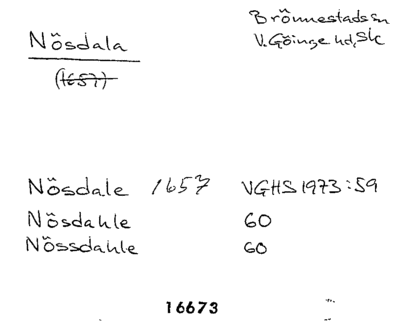 Nösdala
Brönnestads sn
V. Göinge hd, Sk
(1657)
Nösdale 1657 VGHS 1973:59
Nösdahle 60
Nössdahle 60
16673